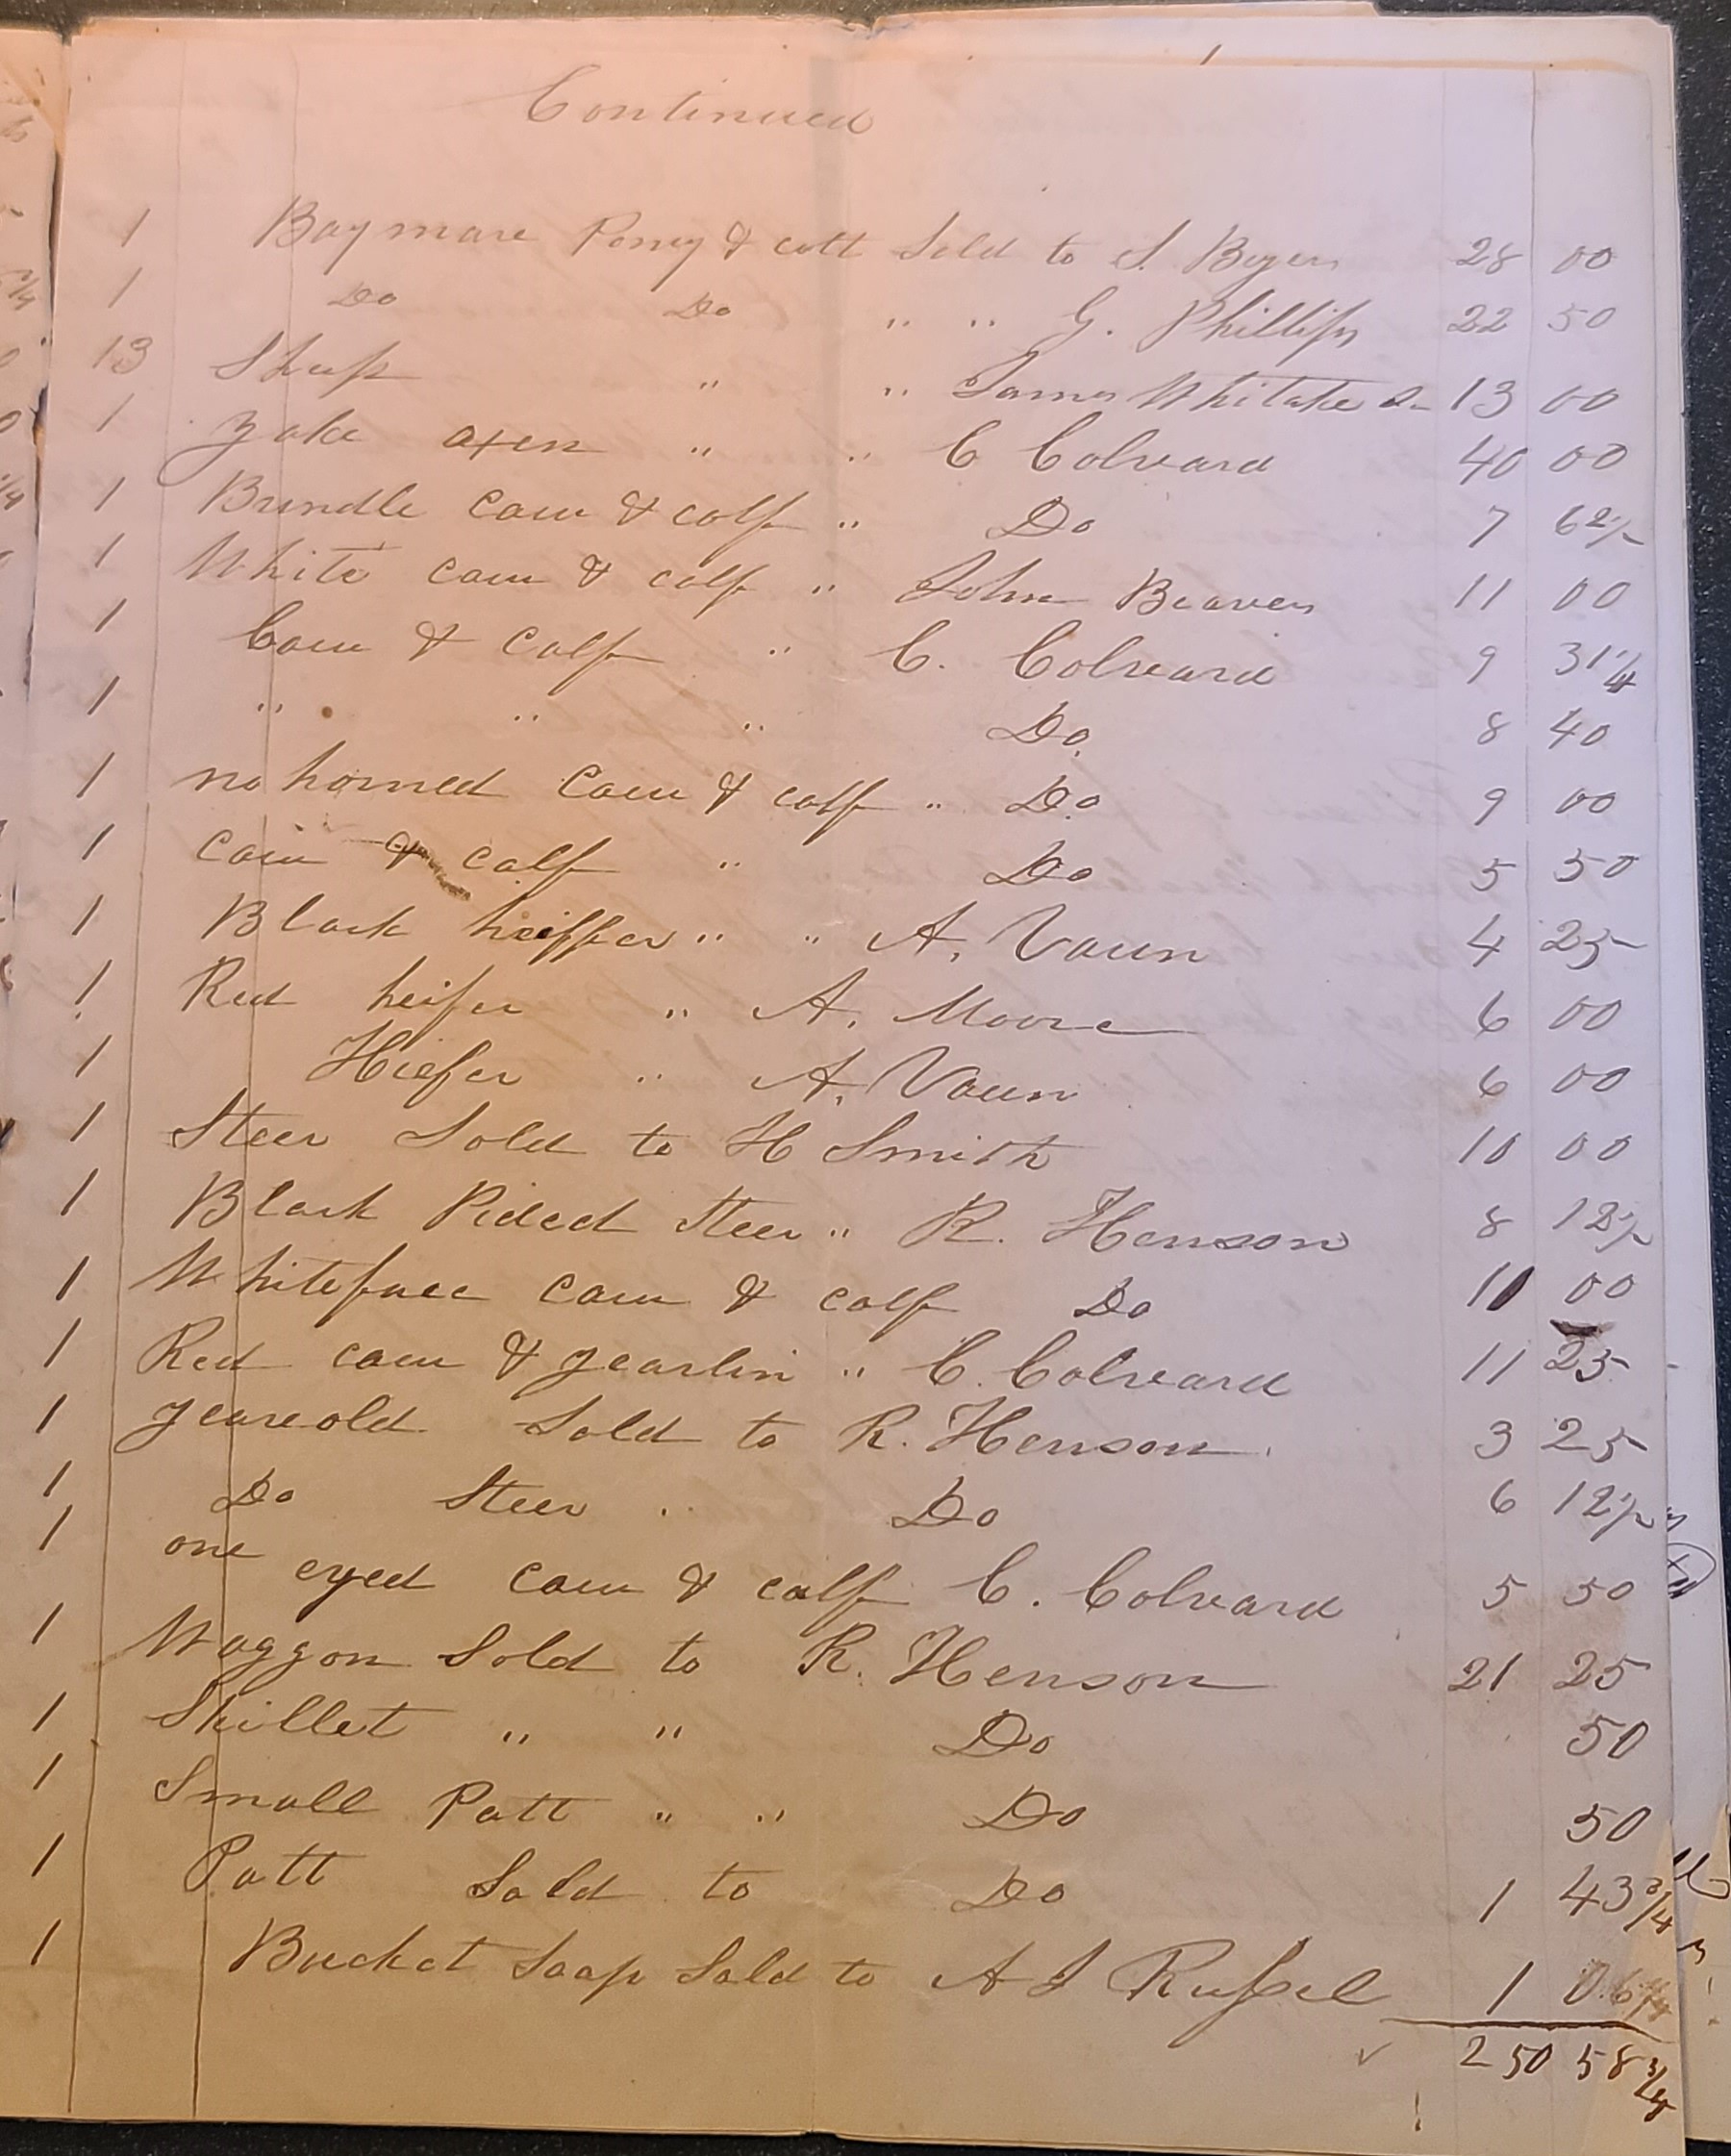 Continued
1 Bay mare Poney & colt Sold to S. Byers 28 00
1 Do Do " " G. Phillips 22 50
13 Sheep " " James Whitaker Sr 13 00
1 Yoke oxen " " C Colvard 40 00
1 Brindle Cow & calf " Do 7 62 1/2
1 White cow & calf " John Beavers 11 00
1 Cow & Calf " C. Colvard 9 31 1/4
1 " " " Do 8 40
1 no horned Cow & calf " Do 9 00
1 Cow & calf " Do 5 50
1 Black heiffer " " A. Vaun 4 25
1 Red heifer " A. Moore 6 00
1 Hiefer " A. Vaun 6 00
1 Steer Sold to H Smith 10 00
1 Black Pided Steer " R. Henson 8 12 1/2
1 Whiteface Cow & calf Do 10 00
1 Red cow & yearlin " C. Colvard 11 25
1 yeareold Sold to R. Henson 3 25
1 Do Steer " Do 6 12 1/2
1 one eyed Cow & calf C. Colvard 5 50
1 Waggon Sold to R. Henson 21 25
1 Skillet " " Do 50
1 Small Patt " " Do 50
1 Patt Sold to Do 1 43 3/4
1 Bucket Soap Sold to A J Russel 1 06 1/4
250 58 3/4